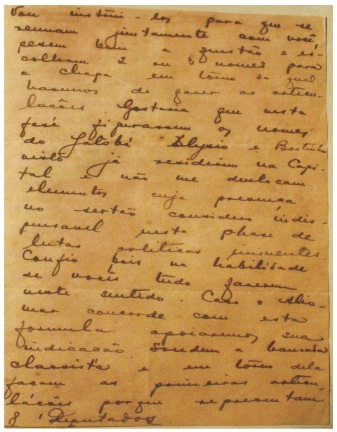 Vou instrui-los para que se
reunam juntamente com você,
pesem bem a questão e es-
colham 2 ou 3 nomes para
a chapa em torno da qual
havemos de fazer as articu-
lações Gostaria que nesta
fase figurassem os nomes
do Jalobá Elysio e
visto já residirem na Capi-
tal e não me deslocam
elementos cuja presença
no sertão considero indis-
pensavel nesta phase de
lutas politicas iminentes
Confio pois na habilidade
de vocês tudo fazerem
neste sentido Caso o
mar concorde com esta
formula apoiaremos sua
indicação
classista e em torno dela
façam as primeiras articu-
lações porque representam
8 Deputados